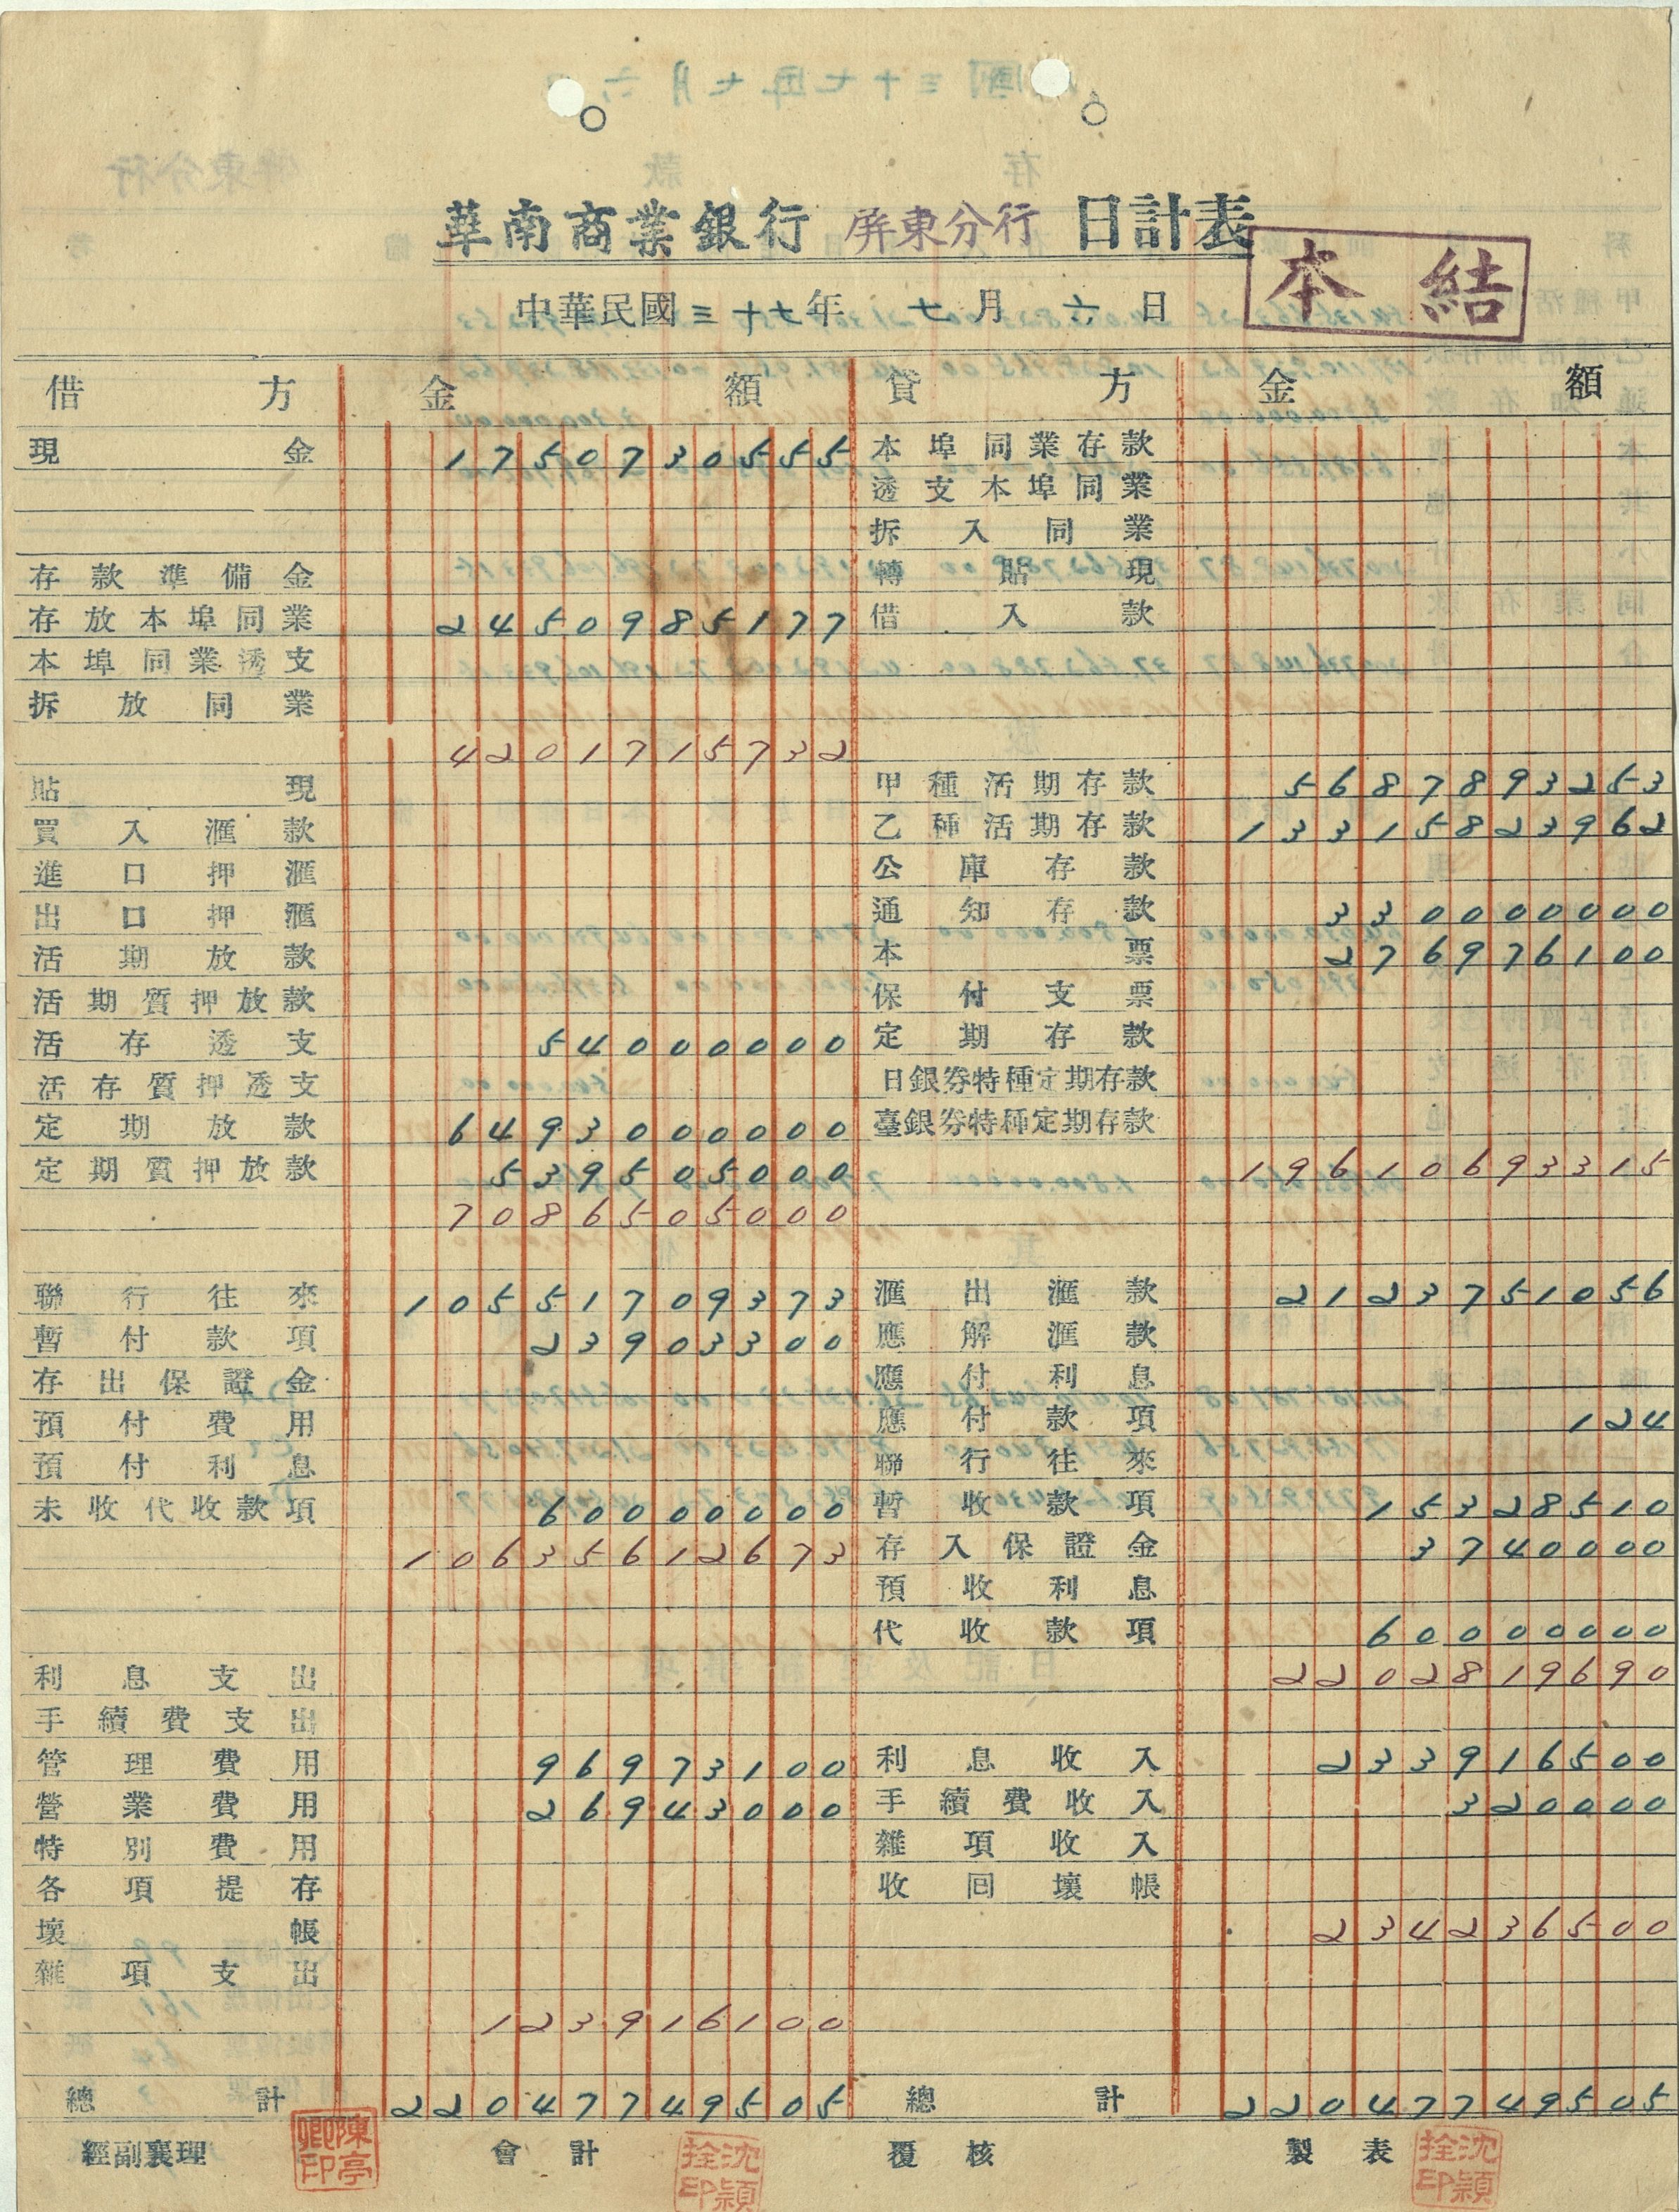 華南商業銀行 屏東分行 日計表
本結
中華民國三十七年 七月 六日
借方 金額 貸方 金額
現金 1750730555 本埠同業存款
透支本埠同業
拆入同業
存款準備金 轉貼現
存放本埠同業 2450985177 借入款
本埠同業透支
拆放同業
4201715732
貼現 甲種活期存款 5687893253
買入滙款 乙種活期存款 13315823962
進口押滙 公庫存款
出口押滙 通知存款 330000000
活期放款 本票 276976100
活期質押放款 保付支票
活存透支 54000000 定期存款
活存質押透支 日銀券特種定期存款
定期放款 6493000000 臺銀券特種定期存款
定期質押放款 539505000 19610693315
7086505000
聯行往來 10551709373 滙出滙款 2123751056
暫付款項 23903300 應解滙款
存出保證金 應付利息
預付費用 應付款項 124
預付利息 聯行往來
未收代收款項 60000000 暫收款項 15328510
10635612673 存入保證金 3740000
預收利息
代收款項 60000000
利息支出 2202819690
手續費支出
管理費用 96973100 利息收入 233916500
營業費用 26943000 手續費收入 320000
特別費用 雜項收入
各項提存 收回壞帳
壞帳 234236500
雜項支出
123916100
總計 22047749505 總計 22047749505
經副襄理 陳亭卿印 會計 沈穎拴印 覆核 製表 沈穎拴印